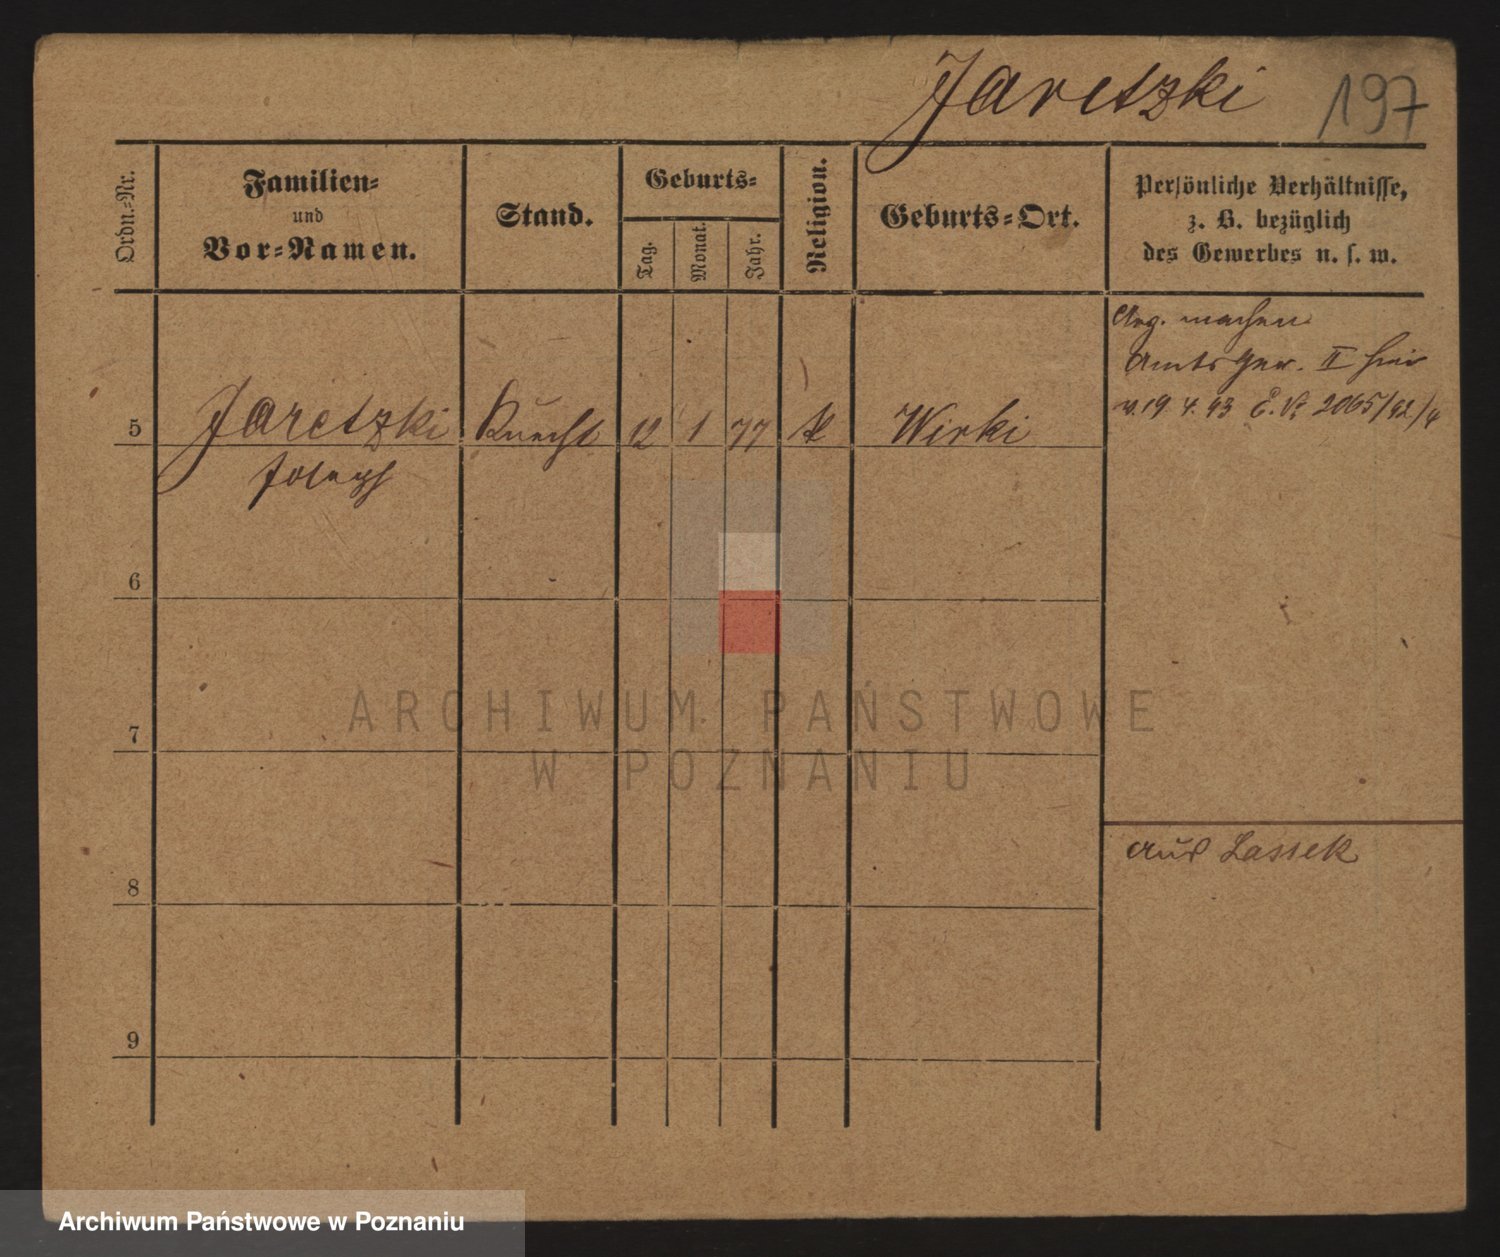 Jaretzki 197
Ordn.-Nr.
Familien-
und
Vor-Namen.
Stand.
Geburts-
Tag.
Monat.
Jahr.
Religion.
Geburts-Ort.
Persönliche Verhältnisse,
z. B. bezüglich
des Gewerbes u. s. w.
machen
Amts Ger. II hier
v. 19. 4. 93 2065/92/4
5 Jaretzki Knecht 12 1 77 k Wirki
Joseph
6
7
8
9
aus Lassek
ARCHIWUM PAŃSTWOWE
W POZNANIU
Archiwum Państwowe w Poznaniu